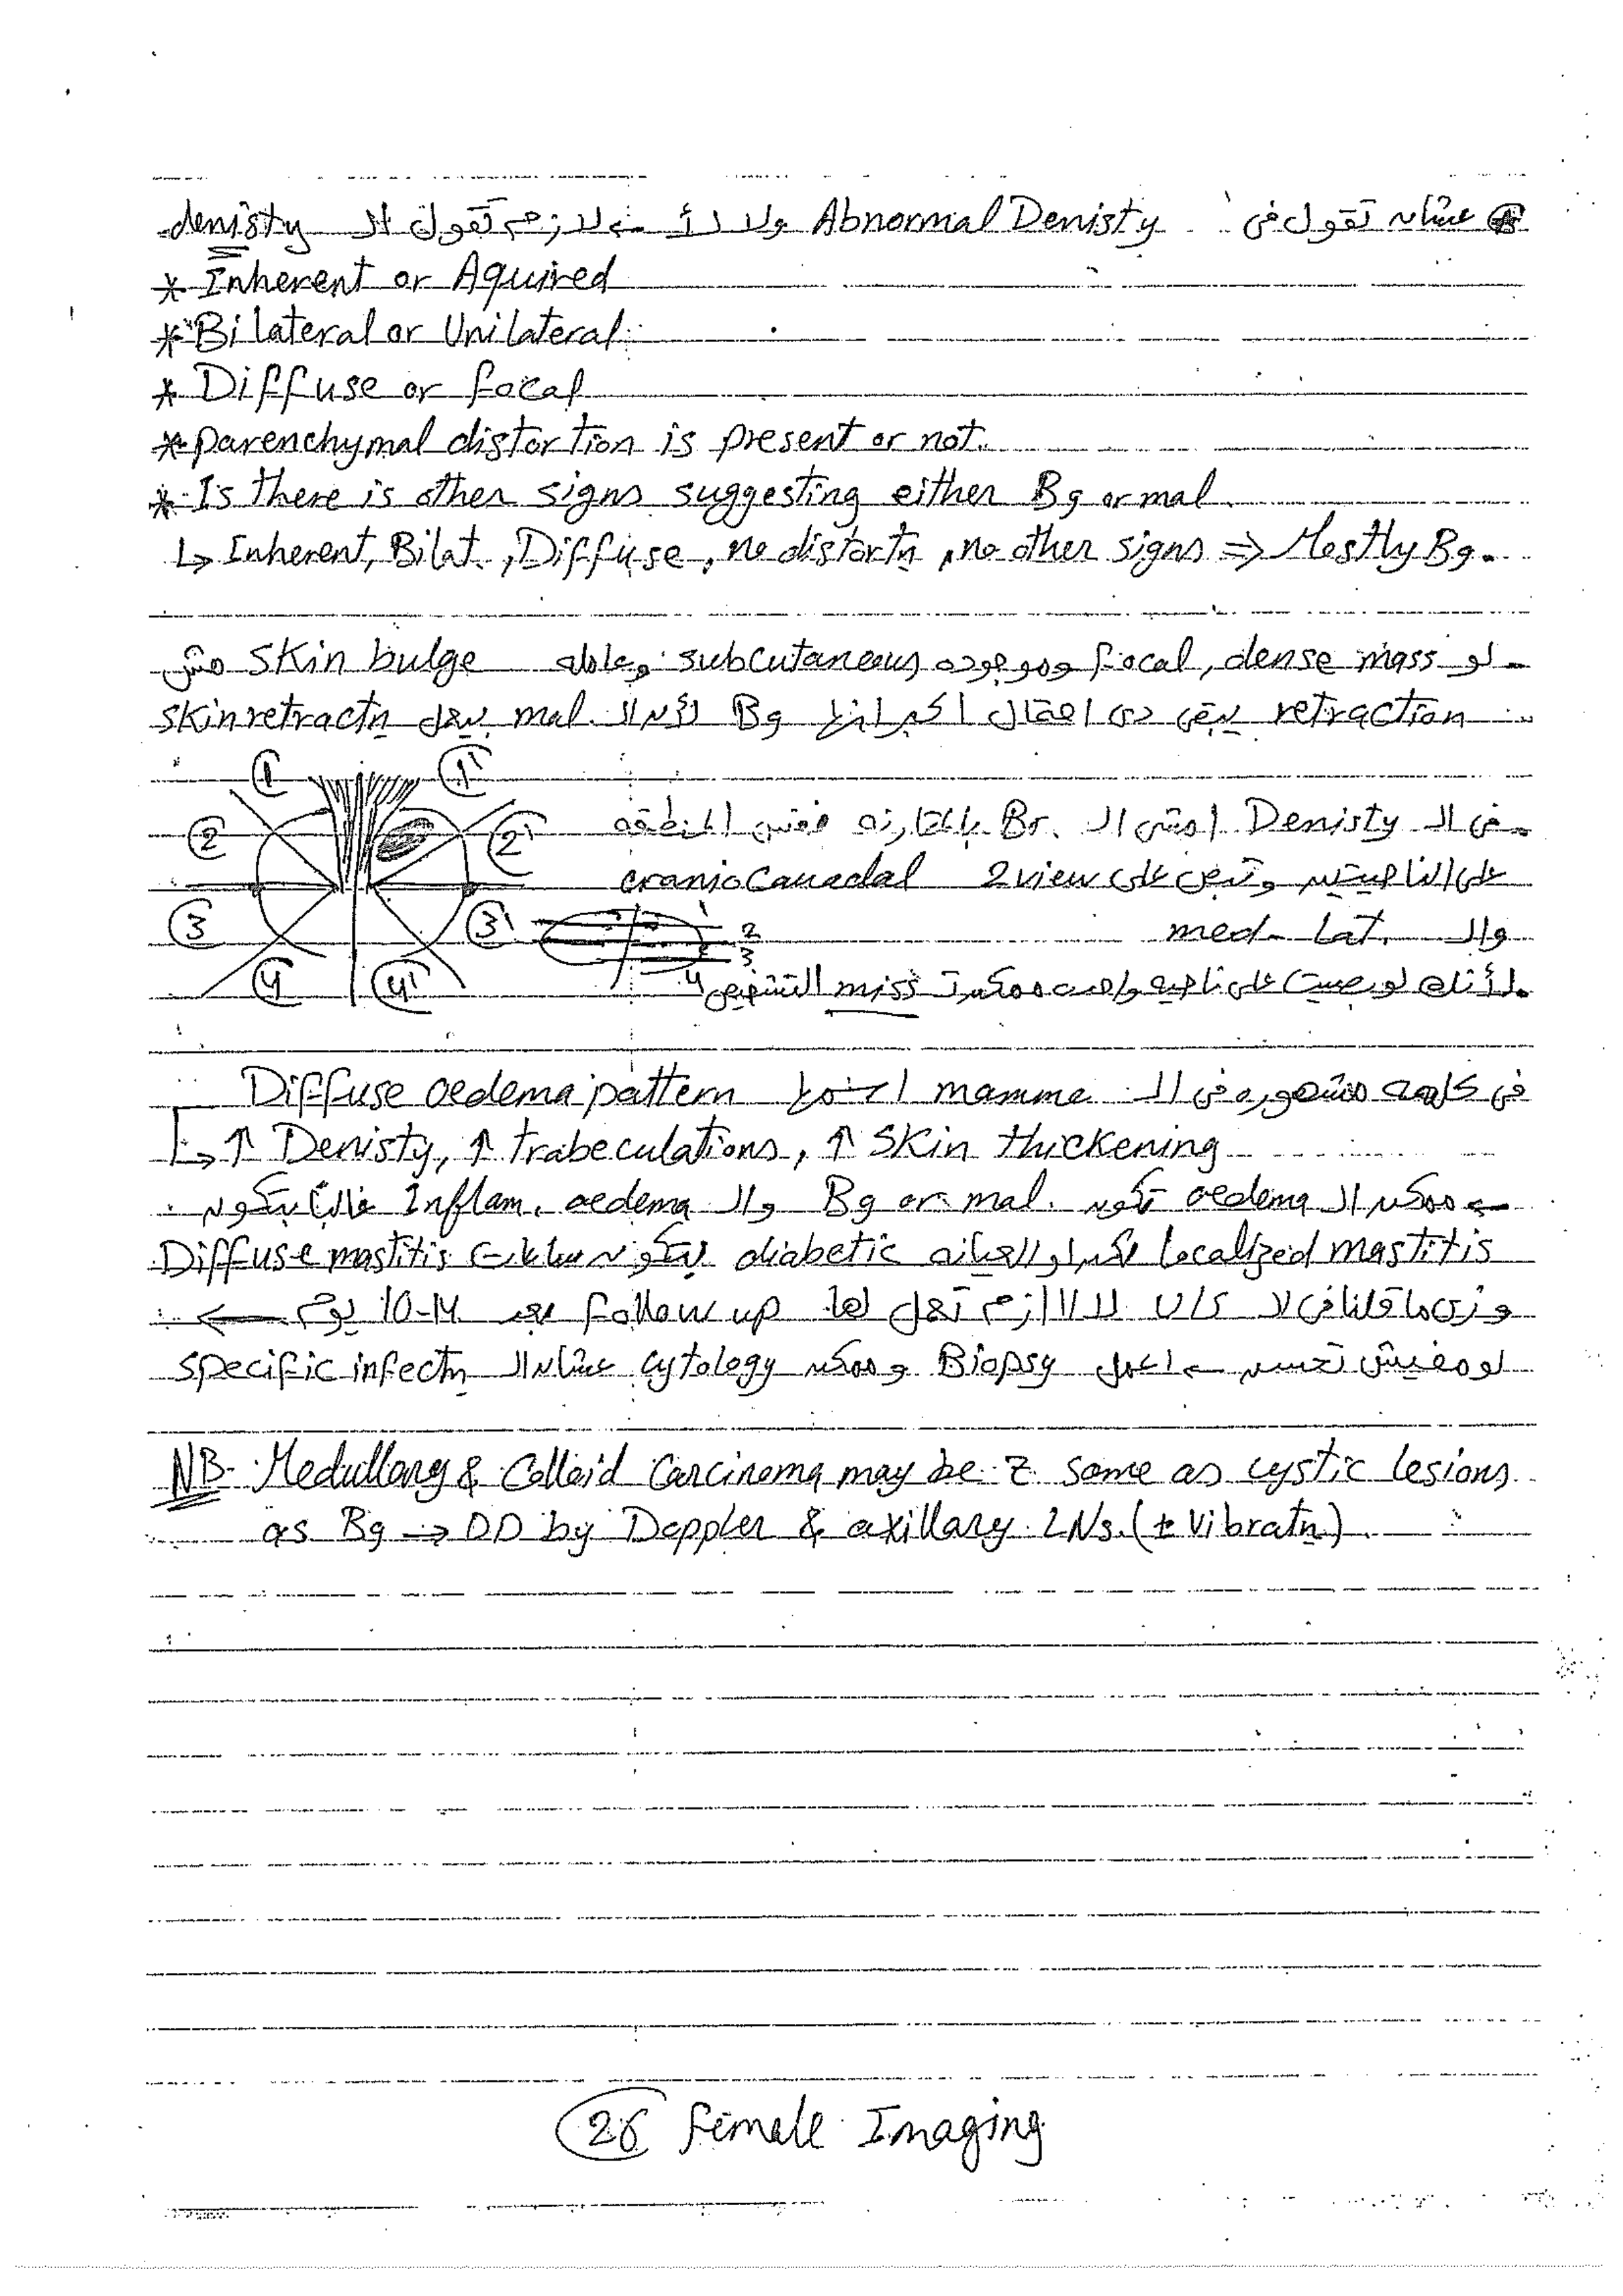 عشان تقول فى Abnormal Denisty ولا لأ ← لازم تقول الـ denisty
* Inherent or Aquired
* Bilateral or Unilateral
* Diffuse or focal
* parenchymal distortion is present or not.
* Is there is other signs suggesting either Bg or mal.
↳ Inherent, Bilat., Diffuse, no distortn, no other signs ⇒ Mostly Bg.
لو focal, dense mass وموجوده subcutaneous وعامله skin bulge مش
retraction يبقى دى احتمال اكبر انها Bg لأن الـ mal. بيعمل skin retractn
① ①'
فى الـ Denisty امشى الـ Br. بالمقارنه فتش المنطقه
② ②'
على الناحيتين وتبص على 2 view cranio Cauadal
③ ③' 1 2 3 4
والـ med- Lat.
④ ④'
لأنك لو بصيت على ناحيه واحده ممكن تـ miss التشخيص
فى كلمه مشهوره فى الـ mammo اسمها Diffuse oedema pattern
↳ ↑ Denisty, ↑ trabeculations, ↑ Skin thickening
← ممكن الـ oedema تكون Bg or mal. والـ Inflam. oedema غالباً بتكون
localized mastitis لكن لو العيانه diabetic بتكون ساعات Diffuse mastitis
وزى ما قلنا فى الـ U/S لازم تعمل لها follow up بعد 10-14 يوم ←
لو مفيش تحسن ← اعمل Biopsy وممكن cytology عشان الـ specific infectn
NB- Medullary & Colloid Carcinoma may be z same as cystic lesions
as Bg → DD by Doppler & axillary LNs. (± Vibratn).
26 female Imaging